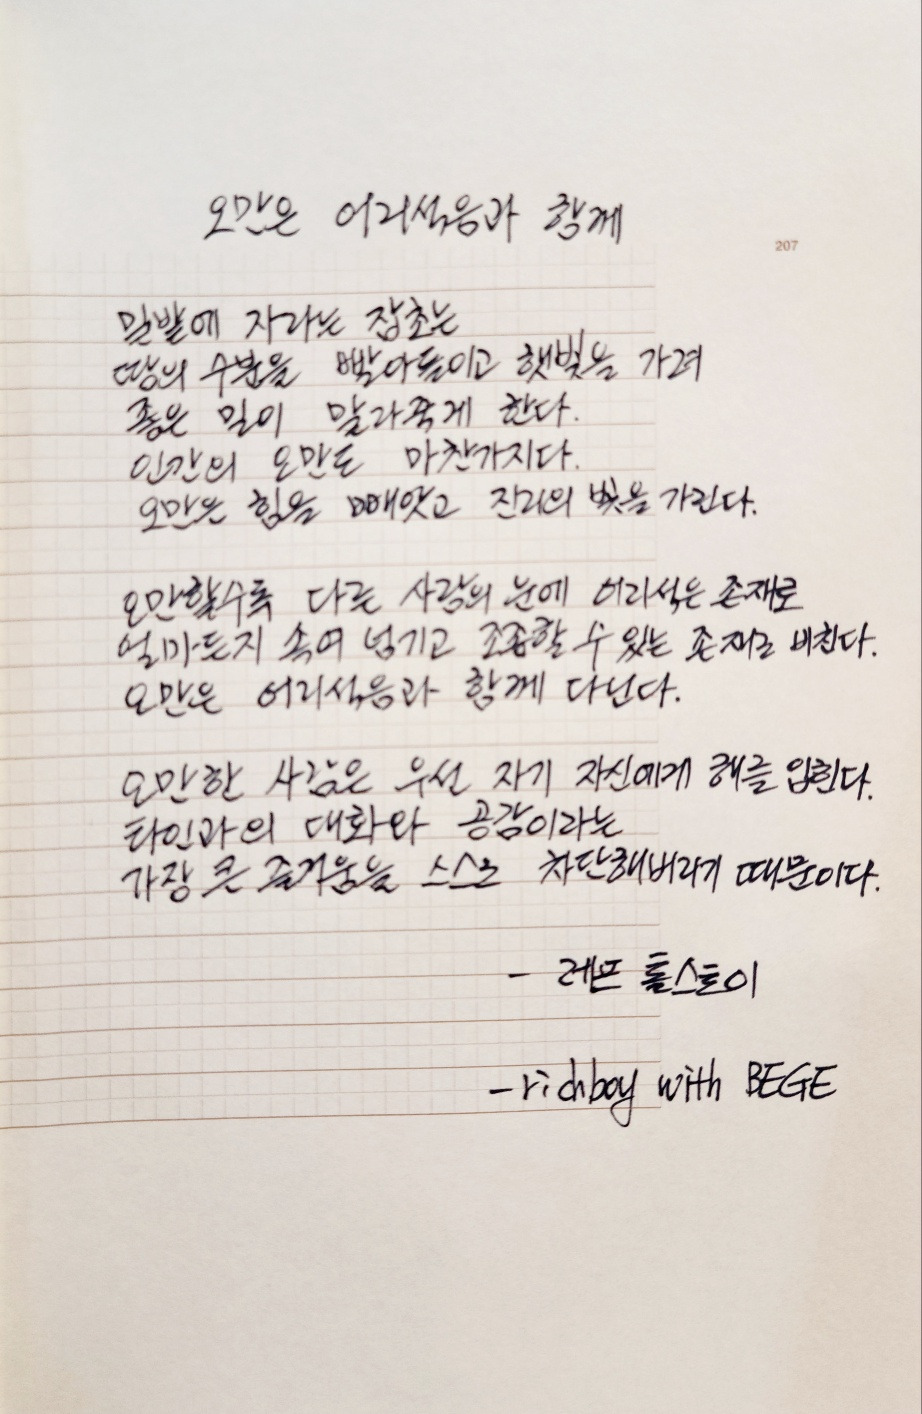 오만은 어리석음과 함께
207
밀밭에 자라는 잡초는
땅의 수분을 빨아들이고 햇빛을 가려
좋은 밀이 말라죽게 한다.
인간의 오만도 마찬가지다.
오만은 힘을 빼앗고 진리의 빛을 가린다.
오만할수록 다른 사람의 눈에 어리석은 존재로
얼마든지 속여 넘기고 조종할 수 있는 존재로 비친다.
오만은 어리석음과 함께 다닌다.
오만한 사람은 우선 자기 자신에게 해를 입힌다.
타인과의 대화와 공감이라는
가장 큰 즐거움을 스스로 차단해버리기 때문이다.
- 레프 톨스토이
- richboy with BEGE